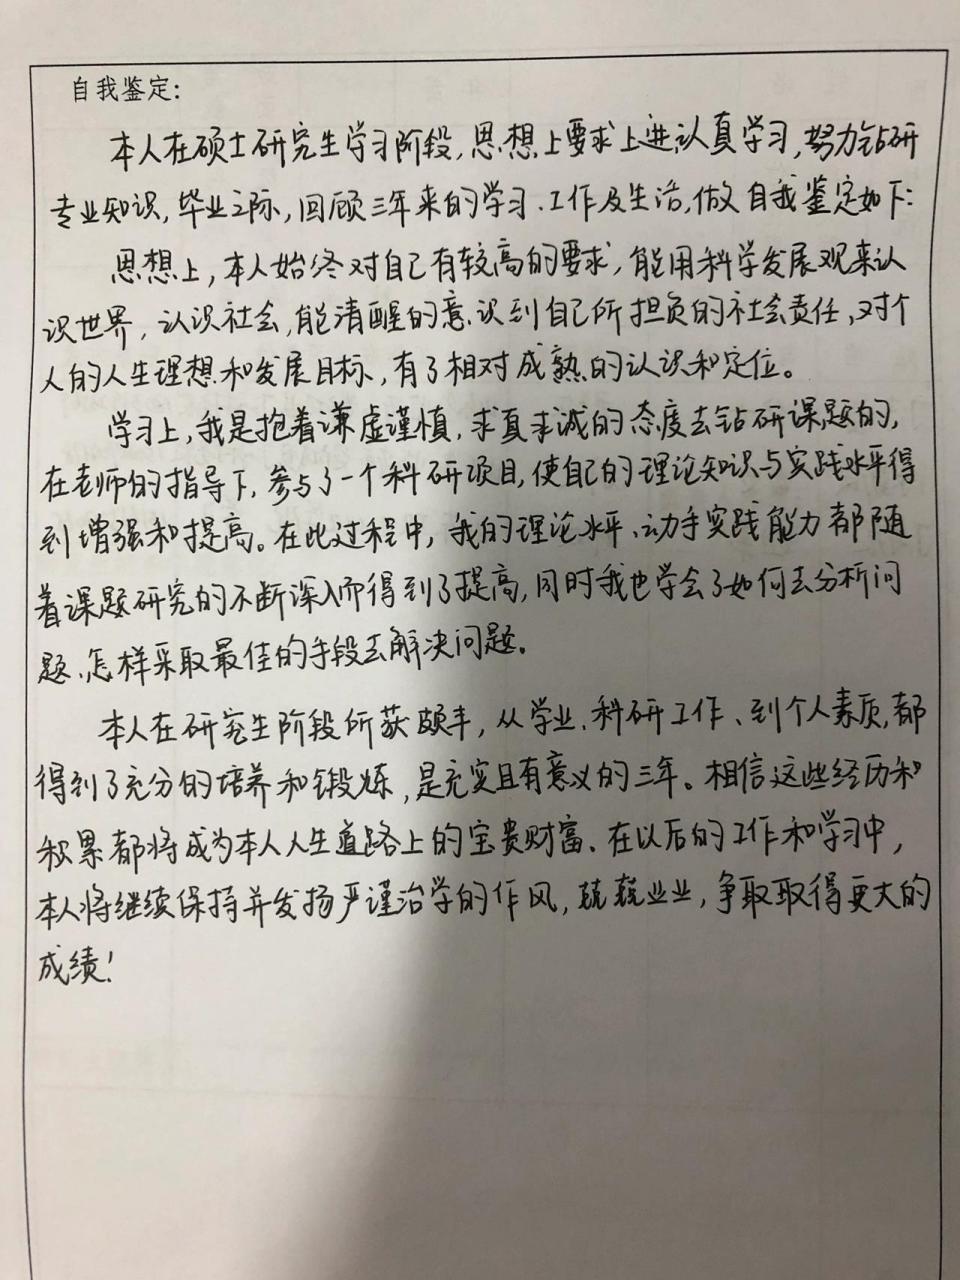 自我鉴定:
本人在硕士研究生学习阶段,思想上要求上进,认真学习,努力钻研
专业知识,毕业之际,回顾三年来的学习、工作及生活,做自我鉴定如下:
思想上,本人始终对自己有较高的要求,能用科学发展观来认
识世界,认识社会,能清醒的意识到自己所担负的社会责任,对个
人的人生理想和发展目标,有了相对成熟的认识和定位。
学习上,我是抱着谦虚谨慎,求真求诚的态度去钻研课题的,
在老师的指导下,参与了一个科研项目,使自己的理论知识与实践水平得
到增强和提高。在此过程中,我的理论水平、动手实践能力都随
着课题研究的不断深入而得到了提高,同时我也学会了如何去分析问
题、怎样采取最佳的手段去解决问题。
本人在研究生阶段所获颇丰,从学业、科研工作、到个人素质,都
得到了充分的培养和锻炼,是充实且有意义的三年。相信这些经历和
积累都将成为本人人生道路上的宝贵财富、在以后的工作和学习中,
本人将继续保持并发扬严谨治学的作风,兢兢业业,争取取得更大的
成绩!